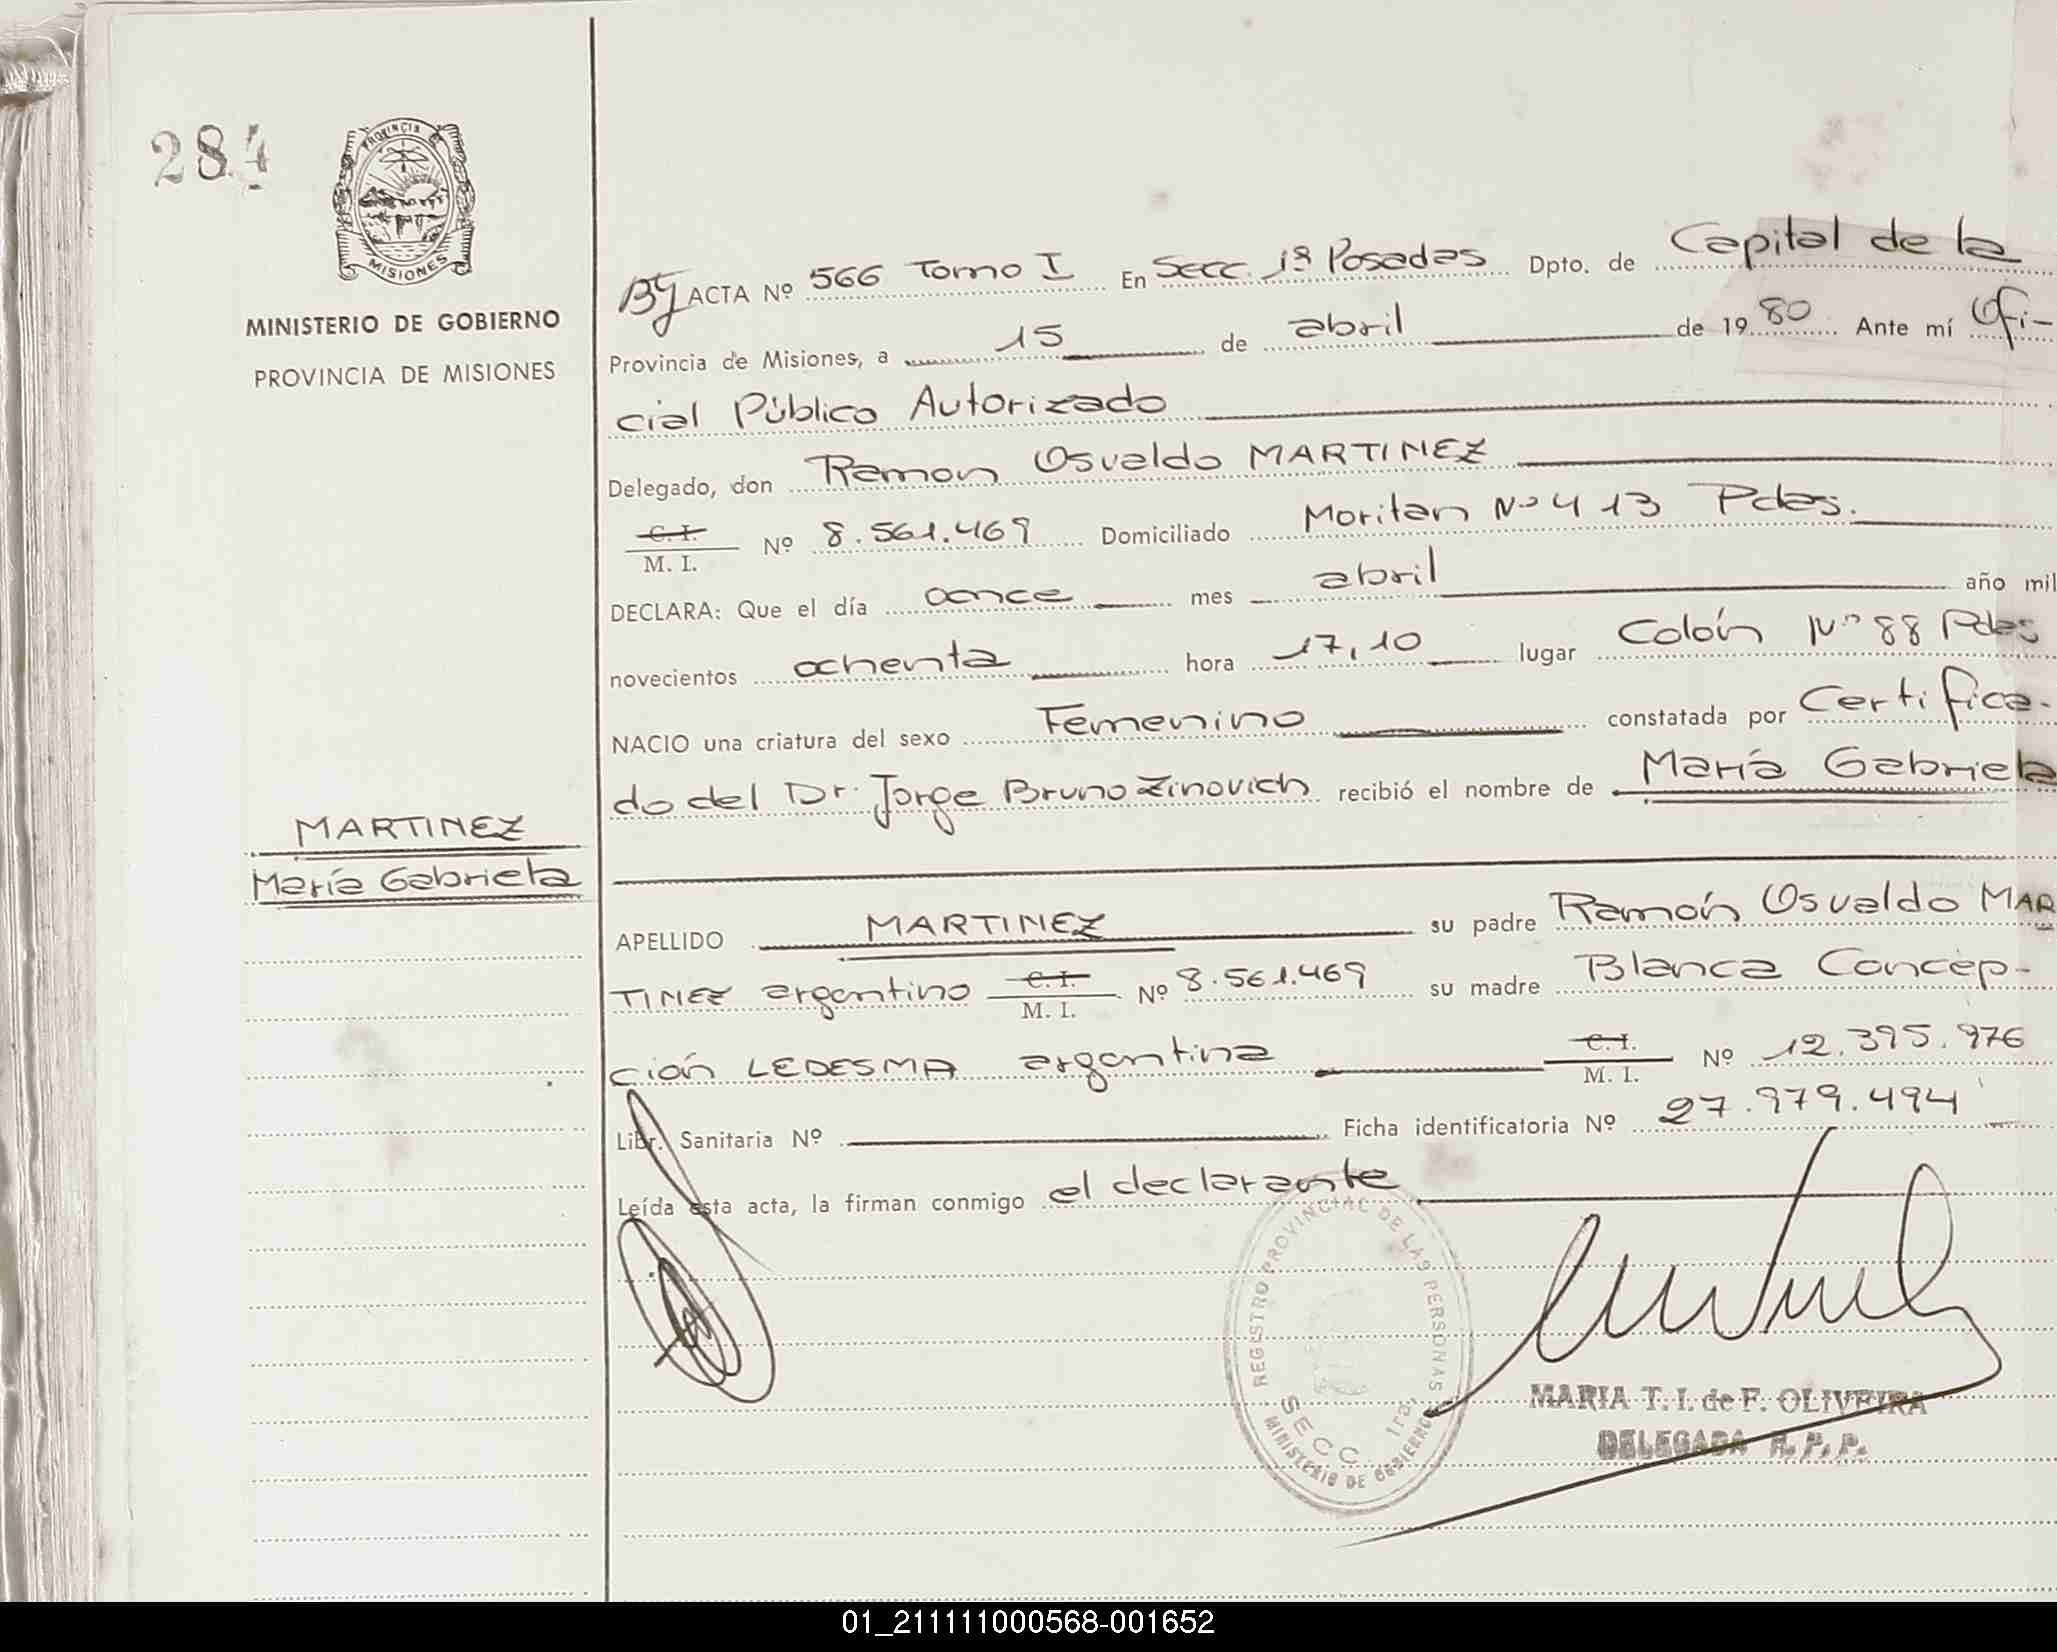 284
PROVINCIA
MISIONES
MINISTERIO DE GOBIERNO
PROVINCIA DE MISIONES
ACTA Nº 566 Tomo I En Secc. 1ª Posadas Dpto. de Capital de la
Provincia de Misiones, a 15 de abril de 1980 Ante mí Ofi-
cial Público Autorizado
Delegado, don Ramon Osvaldo MARTINEZ
C. I.
M. I. Nº 8.561.469 Domiciliado Moritan Nº 413 Pdas.
DECLARA: Que el día once mes abril año mil
novecientos ochenta hora 17,10 lugar Colón Nº 88 Pdas
NACIO una criatura del sexo Femenino constatada por Certifica-
do del Dr. Jorge Bruno Zinovich recibió el nombre de María Gabriela
MARTINEZ
María Gabriela
APELLIDO MARTINEZ su padre Ramón Osvaldo MAR
TINEZ argentino C. I. M. I. Nº 8.561.469 su madre Blanca Concep-
ción LEDESMA argentina C. I. M. I. Nº 12.395.976
Libr. Sanitaria Nº Ficha identificatoria Nº 27.979.494
Leída esta acta, la firman conmigo el declarante
REGISTRO PROVINCIAL DE LAS PERSONAS
SECC. 1ra.
MINISTERIO DE GOBIERNO
MARIA T. I. de F. OLIVEIRA
DELEGADA R. P. P.
01_211111000568-001652